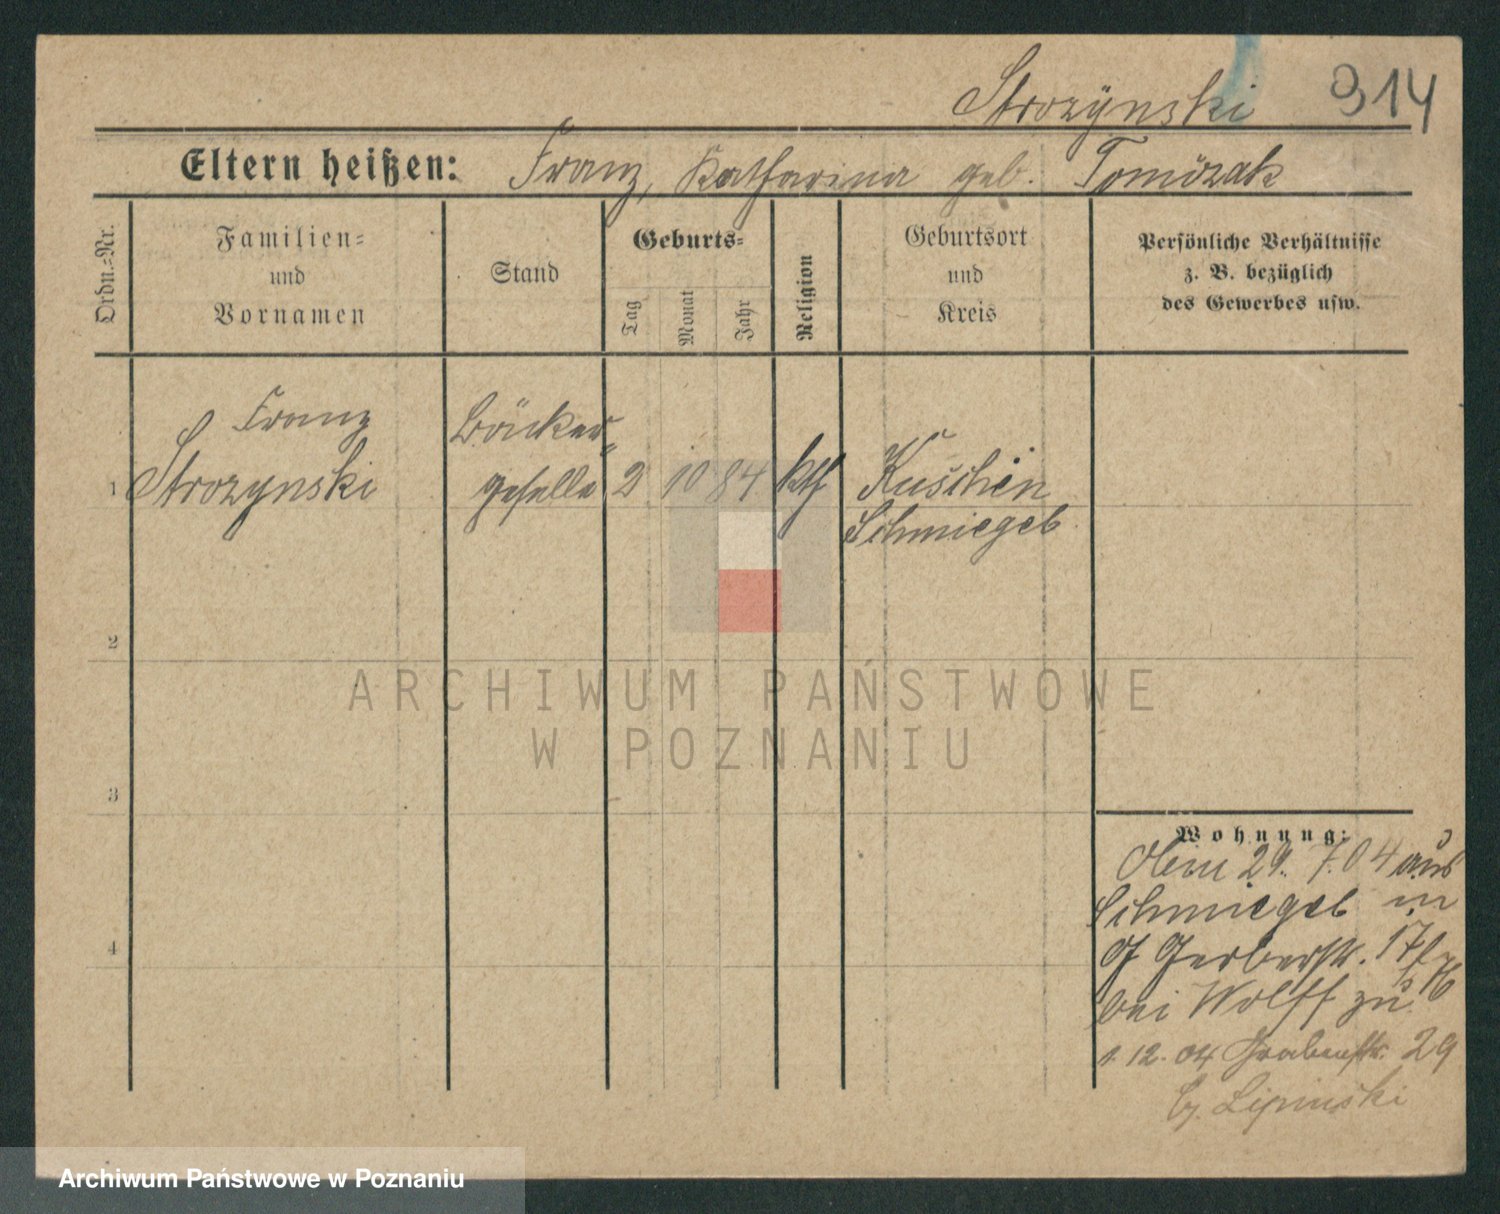 Strozÿnski 314
Eltern heißen: Franz, Katharina geb. Tomözak
Ordn.=Nr.
Familien=
und
Vornamen
Stand
Geburts=
Tag
Monat
Jahr
Religion
Geburtsort
und
Kreis
Persönliche Verhältnisse
z. B. bezüglich
des Gewerbes usw.
Franz
Bäcker
1 Strozynski geselle 2 10 84 kth Kuschen
Schmiegel
2
3
4
Wohnung:
29. 7. 04 aus
Schmiegel in
Gerberstr. 17
bei Wolff zu
1. 12. 04 Grabenstr. 29
Lipinski
ARCHIWUM PAŃSTWOWE
W POZNANIU
Archiwum Państwowe w Poznaniu